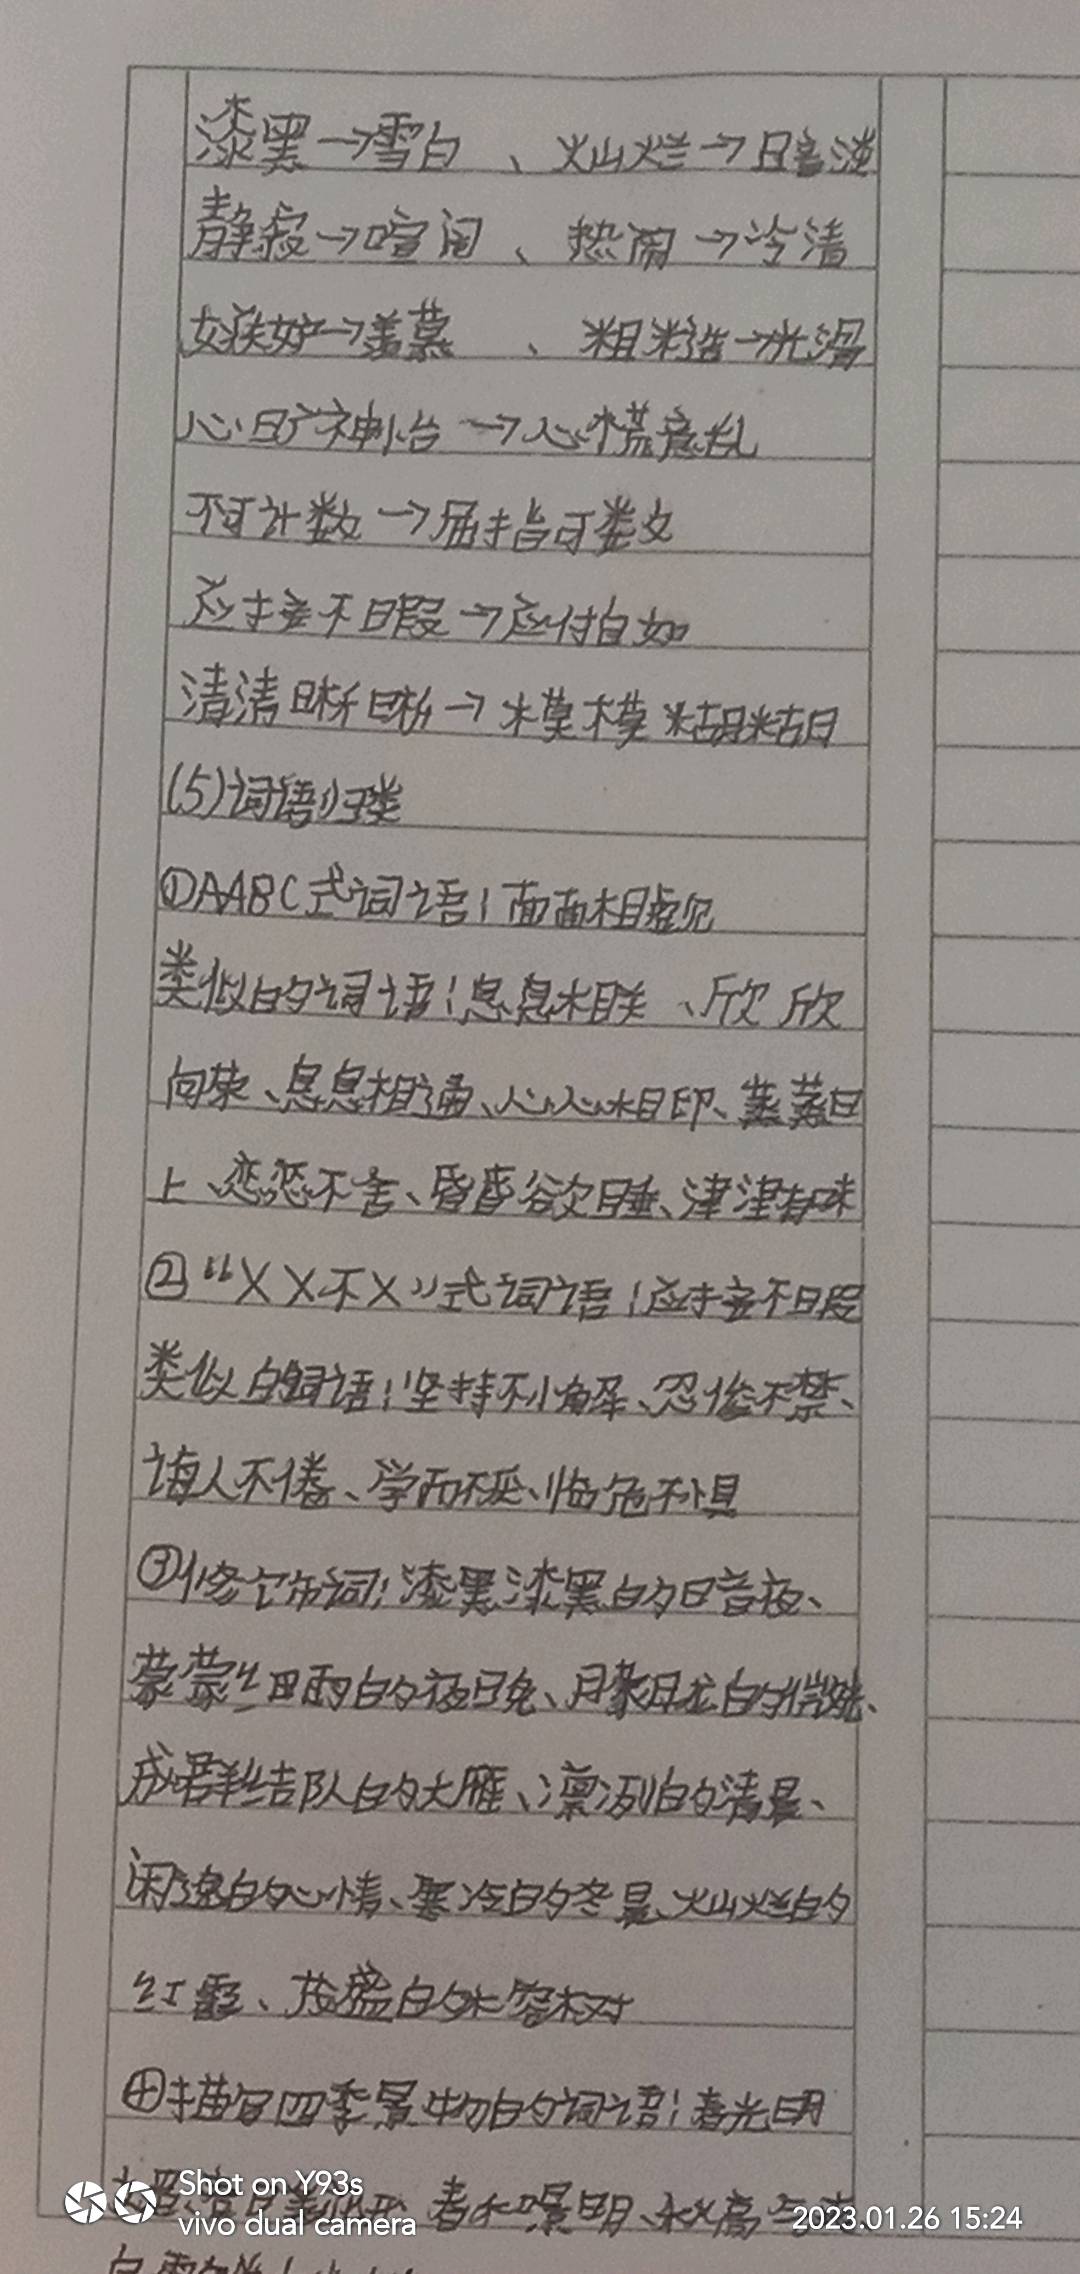 漆黑→雪白、灿烂→暗淡
静寂→喧闹、热闹→冷清
嫉妒→羡慕、粗糙→光滑
心旷神怡→心慌意乱
不可计数→屈指可数
应接不暇→应付自如
清清晰晰→模模糊糊
(5)词语归类
①AABC式词语:面面相觑
类似的词语:息息相关、欣欣
向荣、息息相通、心心相印、蒸蒸日
上、恋恋不舍、昏昏欲睡、津津有味
②“XX不X”式词语:应接不暇
类似的词语:坚持不懈、忍俊不禁、
诲人不倦、学而不厌、临危不惧
③修饰词:漆黑漆黑的暗夜、
蒙蒙细雨的夜晚、朦胧的
成群结队的大雁、凛冽的清晨、
闲逸的心情、寒冷的冬晨、灿烂的
红霞、茂盛的榕树
④描写四季景物的词语:春光明
春和景明、秋高气
Shot on Y93s
vivo dual camera
2023.01.26 15:24